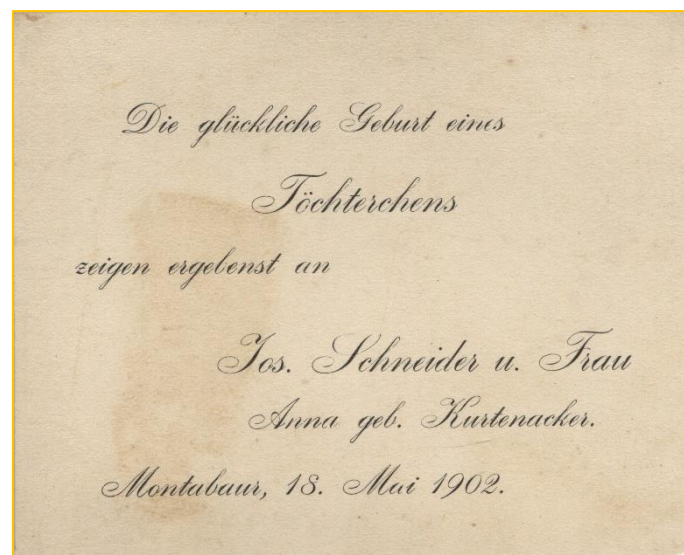 Die glückliche Geburt eines
Töchterchens
zeigen ergebenst an
Jos. Schneider u. Frau
Anna geb. Kurtenacker.
Montabaur, 18. Mai 1902.